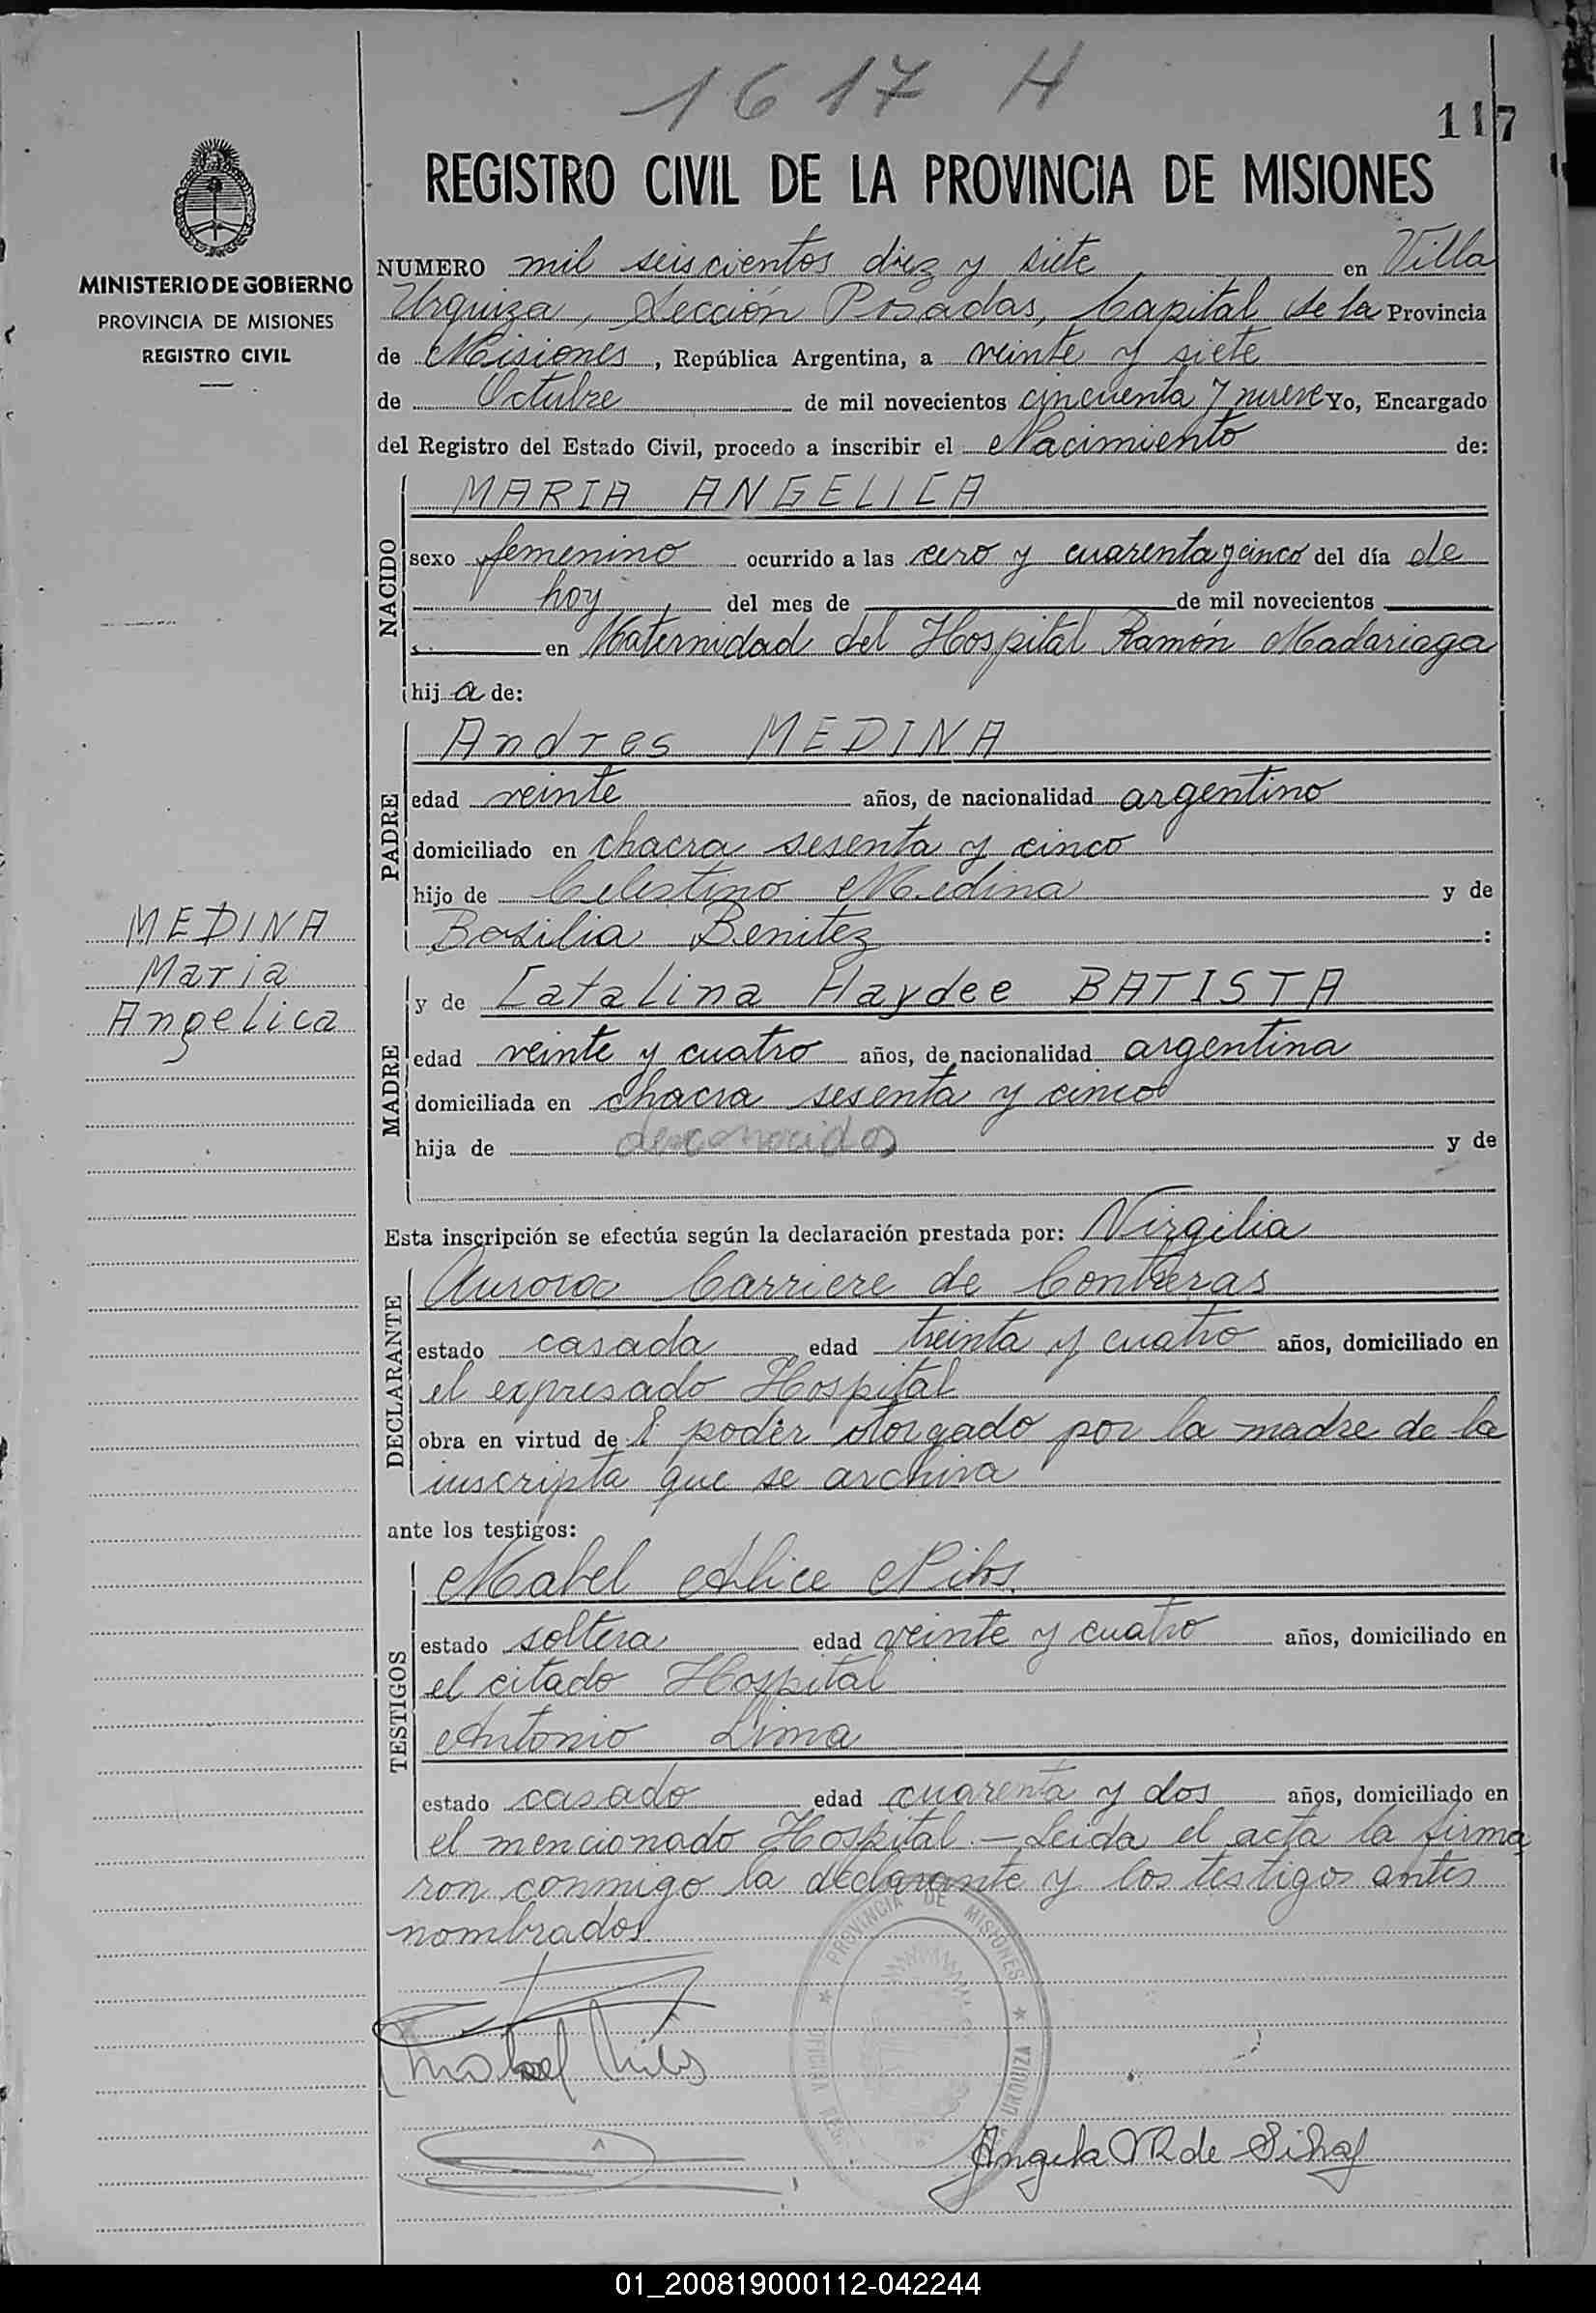 1617 H
117
REGISTRO CIVIL DE LA PROVINCIA DE MISIONES
MINISTERIO DE GOBIERNO
PROVINCIA DE MISIONES
REGISTRO CIVIL
NUMERO mil seiscientos diez y siete en Villa
Urquiza, Sección Posadas, Capital de la Provincia
de Misiones, República Argentina, a veinte y siete
de Octubre de mil novecientos cincuenta y nueve Yo, Encargado
del Registro del Estado Civil, procedo a inscribir el Nacimiento de:
NACIDO
MARIA ANGELICA
sexo femenino ocurrido a las cero y cuarenta y cinco del día de
hoy, del mes de de mil novecientos
en Maternidad del Hospital Ramón Madariaga
hija de:
PADRE
Andres MEDINA
edad veinte años, de nacionalidad argentino
domiciliado en chacra sesenta y cinco
hijo de Celestino Medina y de
Basilia Benitez :
MEDINA
Maria
Angelica
MADRE
y de Catalina Haydee BATISTA
edad veinte y cuatro años, de nacionalidad argentina
domiciliada en chacra sesenta y cinco
hija de desconocidos y de
Esta inscripción se efectúa según la declaración prestada por: Virgilia
DECLARANTE
Aurora Carriere de Contreras
estado casada edad treinta y cuatro años, domiciliado en
el expresado Hospital
obra en virtud de l poder otorgado por la madre de la
inscripta que se archiva
ante los testigos:
TESTIGOS
Mabel Alice
estado soltera edad veinte y cuatro años, domiciliado en
el citado Hospital
Antonio Lima
estado casado edad cuarenta y dos años, domiciliado en
el mencionado Hospital.- Leida el acta la firma
ron conmigo la declarante y los testigos antes
nombrados.
PROVINCIA DE MISIONES
URQUIZA
Mabel
Angela R de
01_200819000112-042244